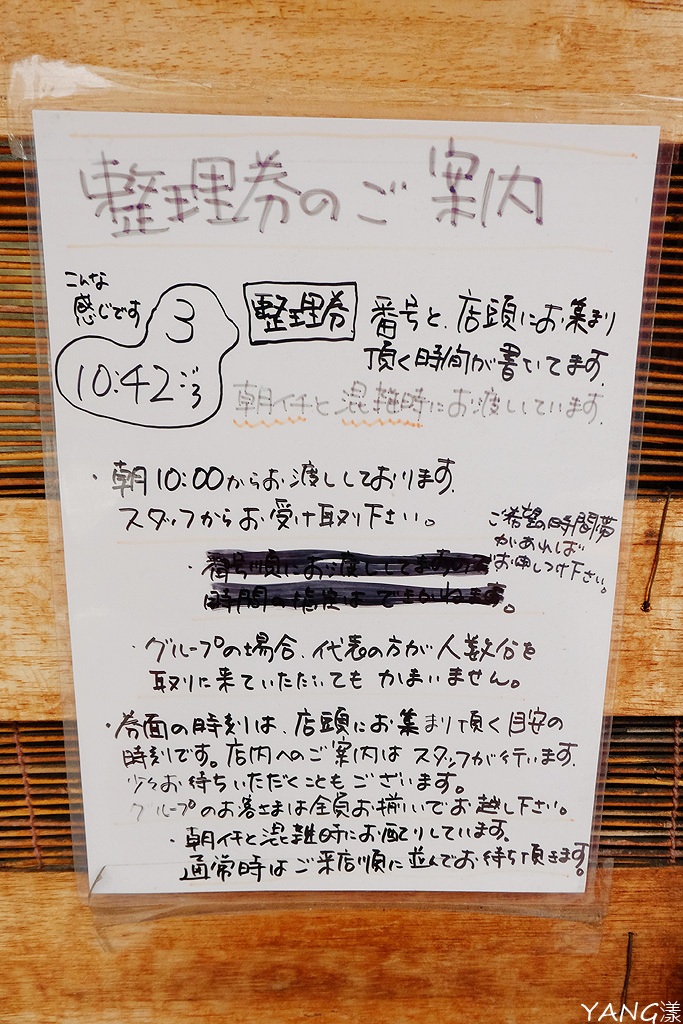 整理券のご案内
こんな
感じです
3
10:42ごろ
整理券
番号と、店頭にお集まり
頂く時間が書いてます。
朝イチと混雑時にお渡ししています。
・朝10:00からお渡ししております。
スタッフからお受け取り下さい。
ご希望の時間帯
があれば
お申しつけ下さい。
・番号順にお渡ししてますので
時間の指定はできかねます。
・グループの場合、代表の方が人数分を
取りに来ていただいてもかまいません。
・券面の時刻は、店頭にお集まり頂く目安の
時刻です。店内へのご案内はスタッフが行います。
少々お待ちいただくこともございます。
グループのお客さまは全員お揃いでお越し下さい。
・朝イチと混雑時にお配りしています。
通常時はご来店順に並んでお待ち頂きます。
YANG漾